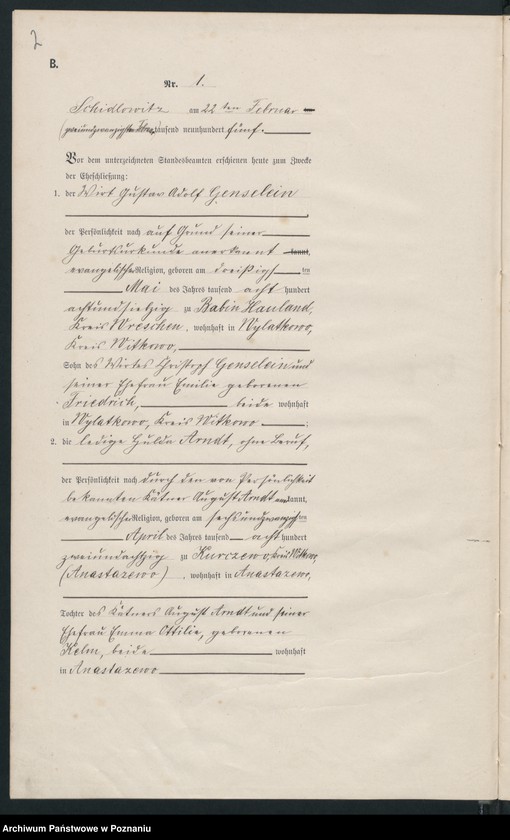 2
B.
Nr. 1.
Schidlowitz am 22 ten Februar
tausend neunhundert fünf.
Vor dem unterzeichneten Standesbeamten erschienen heute zum Zwecke
der Eheschließung:
1. der Wirt Gustav Adolf Genselein
der Persönlichkeit nach auf Grund seiner
Geburtsurkunde anerkannt kannt,
evangelischer Religion, geboren am dreißigsten
Mai des Jahres tausend acht hundert
achtundsiebzig zu Babin Hauland,
Kreis Wreschen, wohnhaft in Wylatkowo,
Kreis Witkowo,
Sohn des Wirtes Christoph Genselein und
seiner Ehefrau Emilie geborenen
Friedrich, beide wohnhaft
in Wylatkowo, Kreis Witkowo ;
2. die ledige Hulda Arndt, ohne Beruf,
der Persönlichkeit nach durch den von Persönlichkeit
bekannten Kätner August Arndt anerkannt,
evangelischer Religion, geboren am sechsundzwanzigsten
April des Jahres tausend acht hundert
zweiundachtzig zu Kurczewo, Kreis Witkowo,
(Anastazewo), wohnhaft in Anastazewo,
Tochter des Kätners August Arndt und seiner
Ehefrau Emma Ottilie, geborenen
Kelm, beide wohnhaft
in Anastazewo
Archiwum Państwowe w Poznaniu